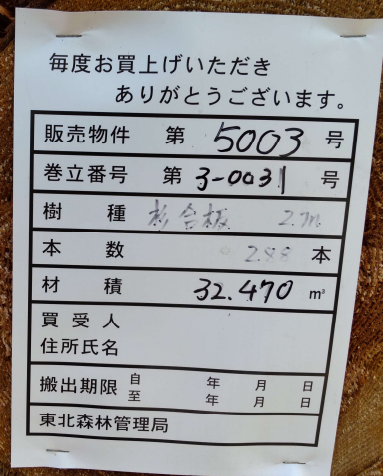 毎度お買上げいただき
ありがとうございます。
販売物件 第 5003 号
巻立番号 第 3-0031 号
樹種 杉合板 2.7m
本数 288 本
材積 32.470 m³
買受人
住所氏名
搬出期限 自 年 月 日
至 年 月 日
東北森林管理局